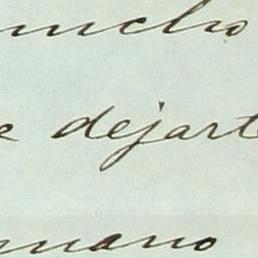 mucho
e dejarte
mano